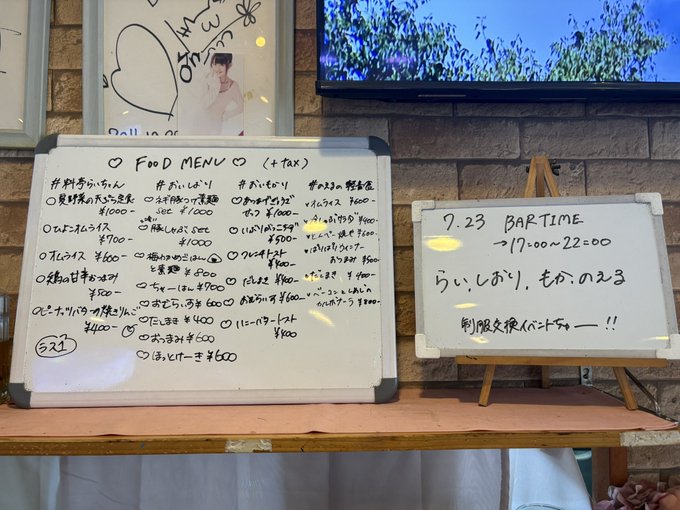 ♡ FOOD MENU ♡ (+tax)
#料亭らいちゃん
○夏野菜の天ぷら定食
¥1000-
○ひよこオムライス
¥700-
○オムライス ¥600-
○鶏の甘辛おつまみ
¥500-
○ピーナッツバターの焼きりんご
¥400-
ラス1
#おいしおり
♡ネギ豚つけ素麺
set ¥1000
♡豚しゃぶ set
¥1000
♡梅わかめごはん
と素麺 ¥800
♡ちゃーはん ¥700
♡おむらいす ¥600
♡だしまき ¥400
♡おつまみ ¥600
♡ほっとけーき ¥600
#おいもかり
セット ¥1000-
¥500-
♡フレンチトースト
¥400-
♡だしまき ¥400-
♡おむらいす ¥600-
♡ハニーバタートースト
¥400
#のえるの軽食屋
オムライス ¥600-
¥400-
とんぺー焼き ¥600-
ぱりぱりウィンナー
おつまみ ¥500
だしまき ¥400-
カルボナーラ ¥800-
7.23 BARTIME
→17:00~22:00
らい、しおり、もか、のえる
制服交換イベントちゅー!!